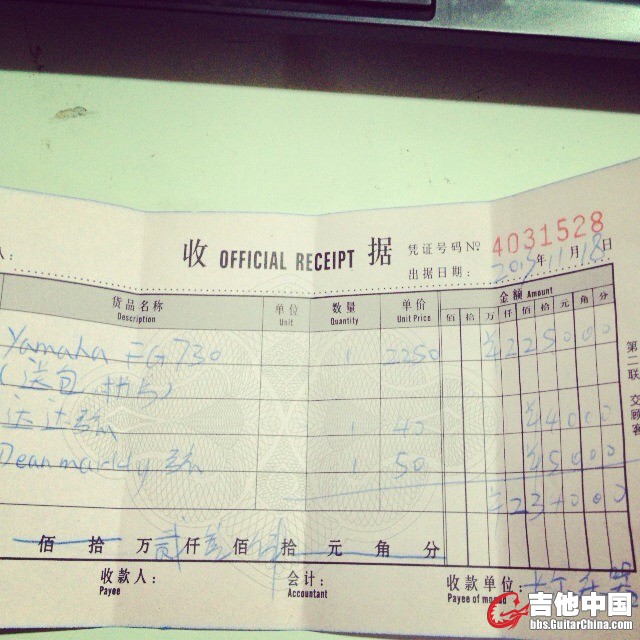 人：
收 OFFICIAL RECEIPT 据
凭证号码 № 4031528
出据日期： 2013年11月18日
货品名称 Description 单位 Unit 数量 Quantity 单价 Unit Price 金额 Amount
佰 拾 万 仟 佰 拾 元 角 分
Yamaha FG730 1 2250 ¥225000
(送包
1 40 ¥4000
Deanmarkley 弦 1 50 ¥5000
¥234000
佰 拾 万 贰 仟 叁 佰 肆 拾 元 角 分
收款人： Payee
会计： Accountant
收款单位： Payee of
第二联 交顾客
吉他中国
bbs.GuitarChina.com